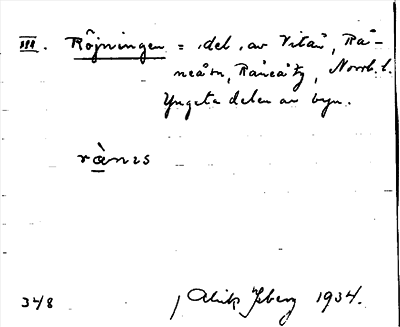 III. Röjningen = del av Vitån, Rå-
neå sn, Råneå tg, Norrb. l.
Yngsta delen av byn.
348 Alrik Isberg 1934.